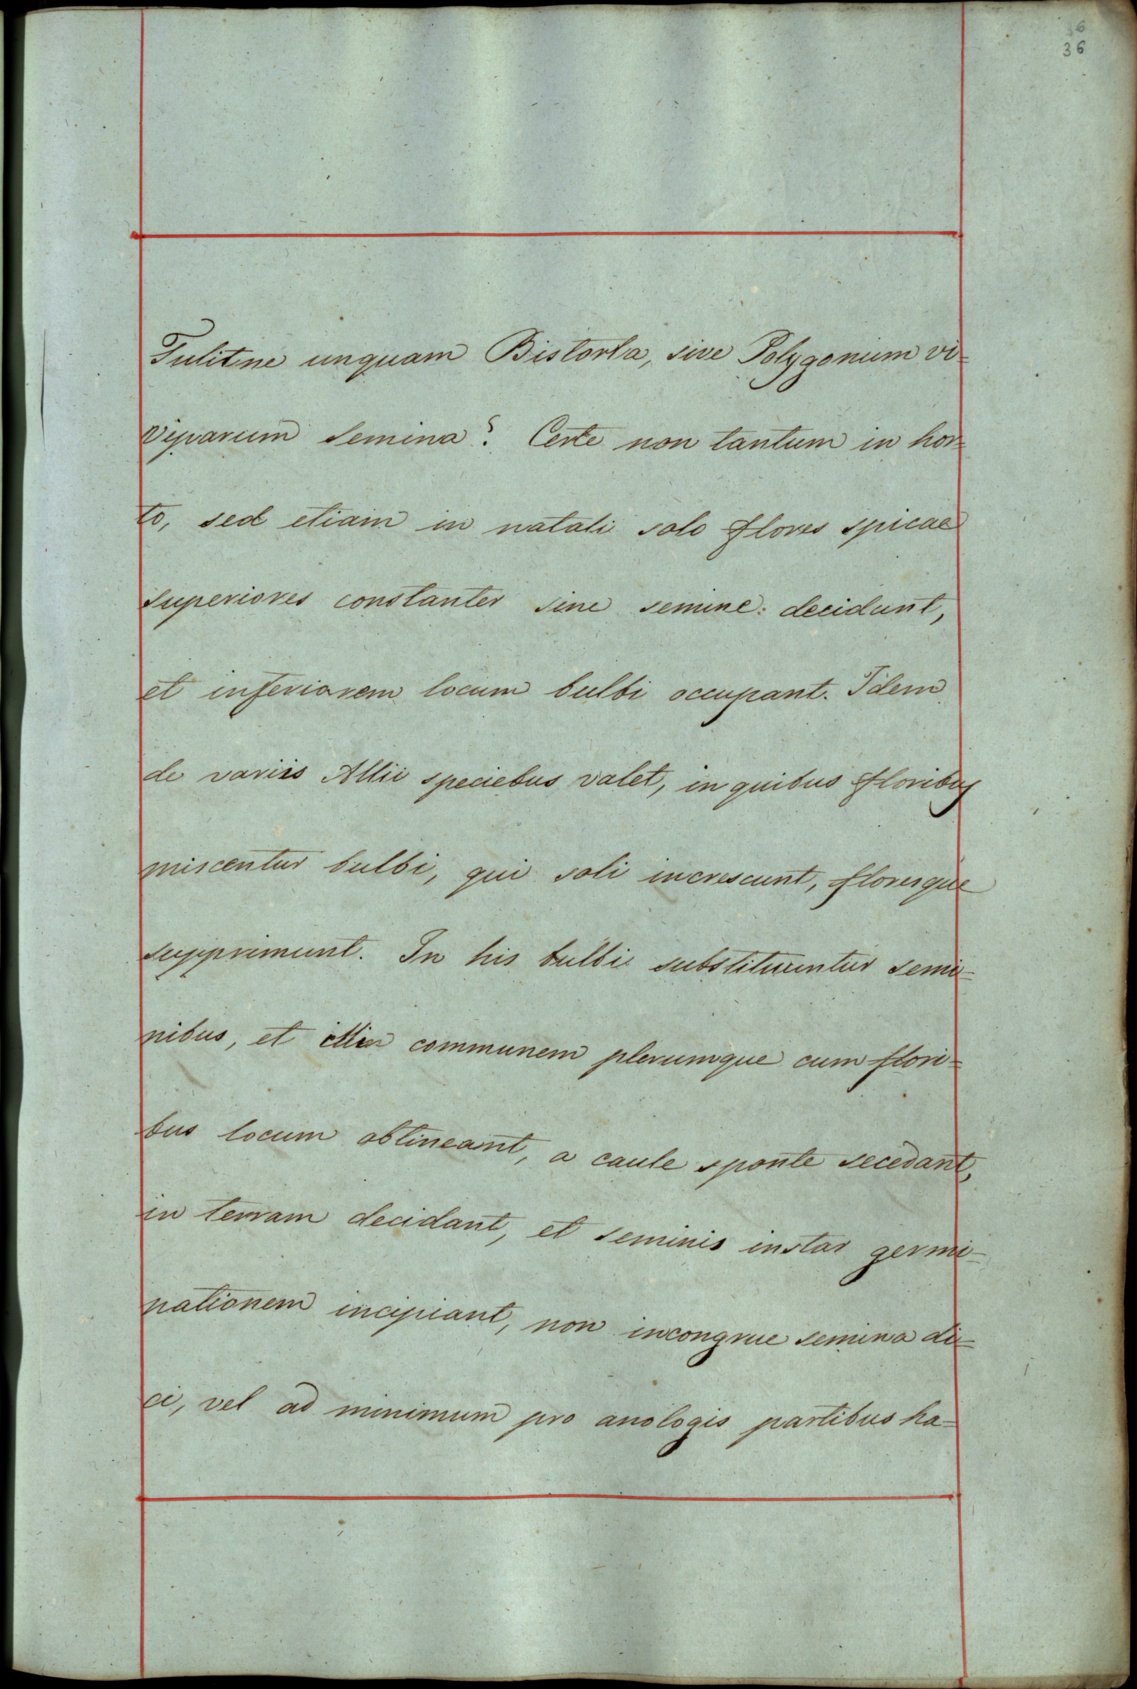 36
36
Tulitne unquam Bistorta, sive Polygonum vi-
viparum semina? Certe non tantum in hor-
to, sed etiam in natali solo flores spicae
superiores constanter sine semine: decidunt,
et inferiorem locum bulbi occupant. Idem
de variis Allii speciebus valet, in quibus floribus
miscentur bulbi, qui soli increscunt, floresque
supprimunt. In his bulbi substituuntur semi-
nibus, et communem plerumque cum flori-
bus locum obtineant, a caule sponte secedant,
in terram decidant, et seminis instar germi-
nationem incipiant, non incongrue semina di-
ci, vel ad minimum pro anologis partibus ha-